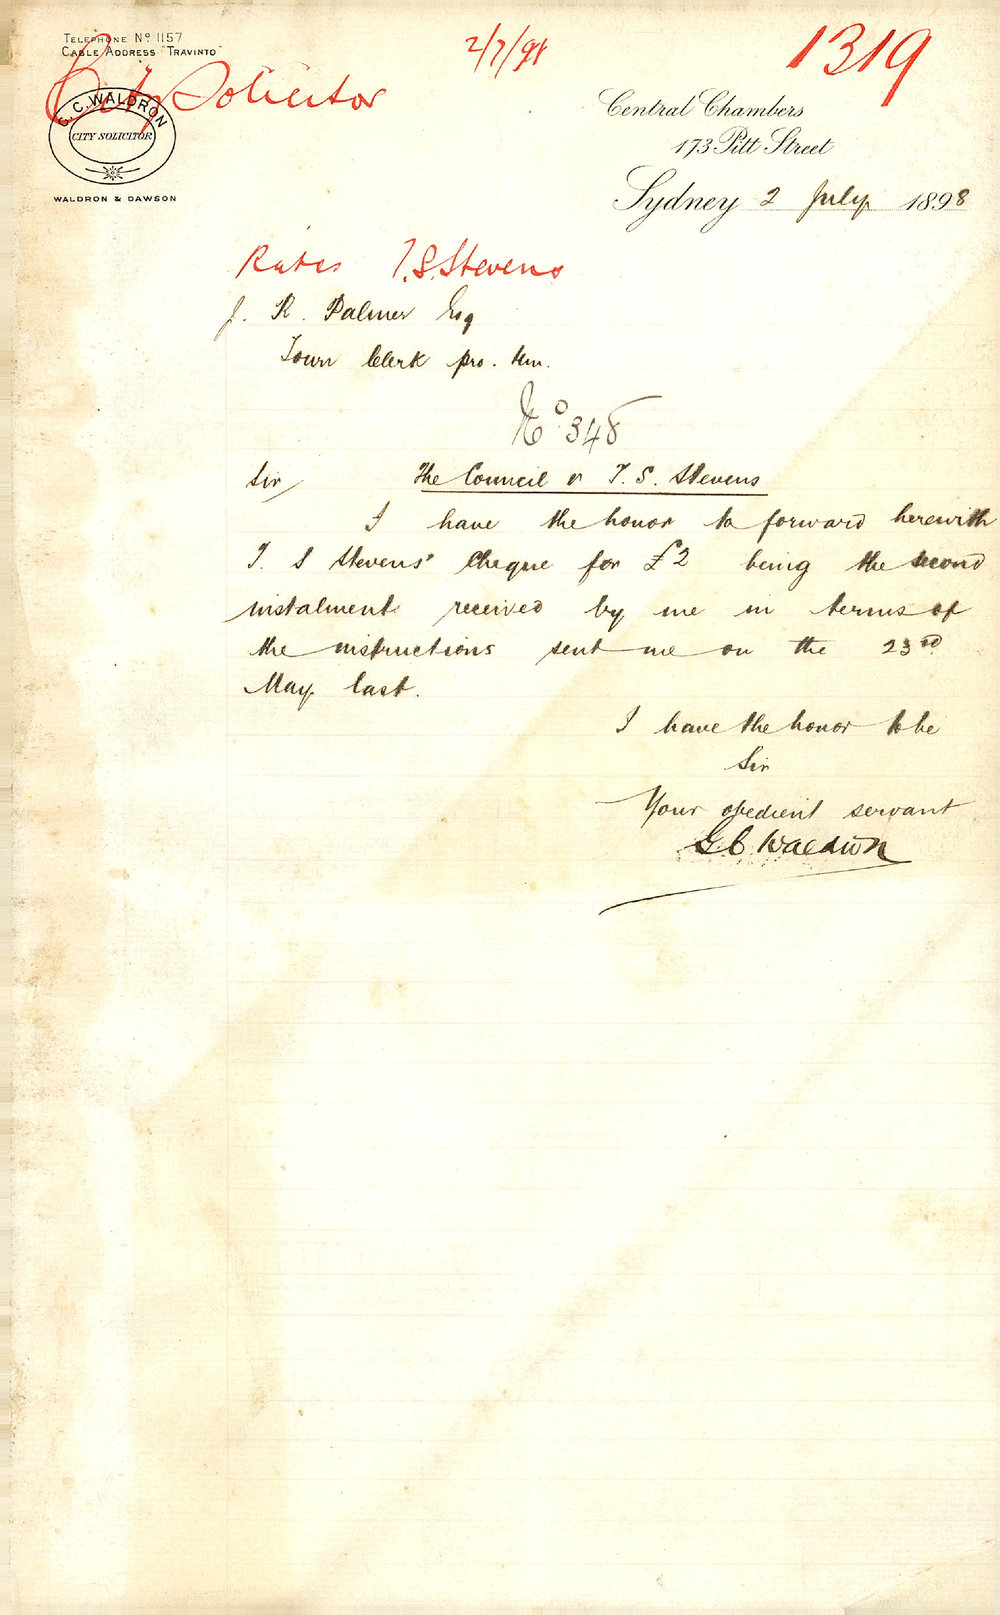 TELEPHONE Nº 1157
CABLE ADDRESS "TRAVINTO"
City Solicitor
2/7/98
1319
G.C. WALDRON
CITY SOLICITOR
WALDRON & DAWSON
Central Chambers
173 Pitt Street
Sydney 2 July 1898
Rates T.S. Stevens
J. R. Palmer Esq
Town Clerk pro. tem.
Nº 348
Sir The Council v T. S. Stevens
I have the honor to forward herewith
T. S Stevens' cheque for £2 being the second
instalment received by me in terms of
the instructions sent me on the 23rd
May last.
I have the honor to be
Sir
Your obedient servant
G C Waldron